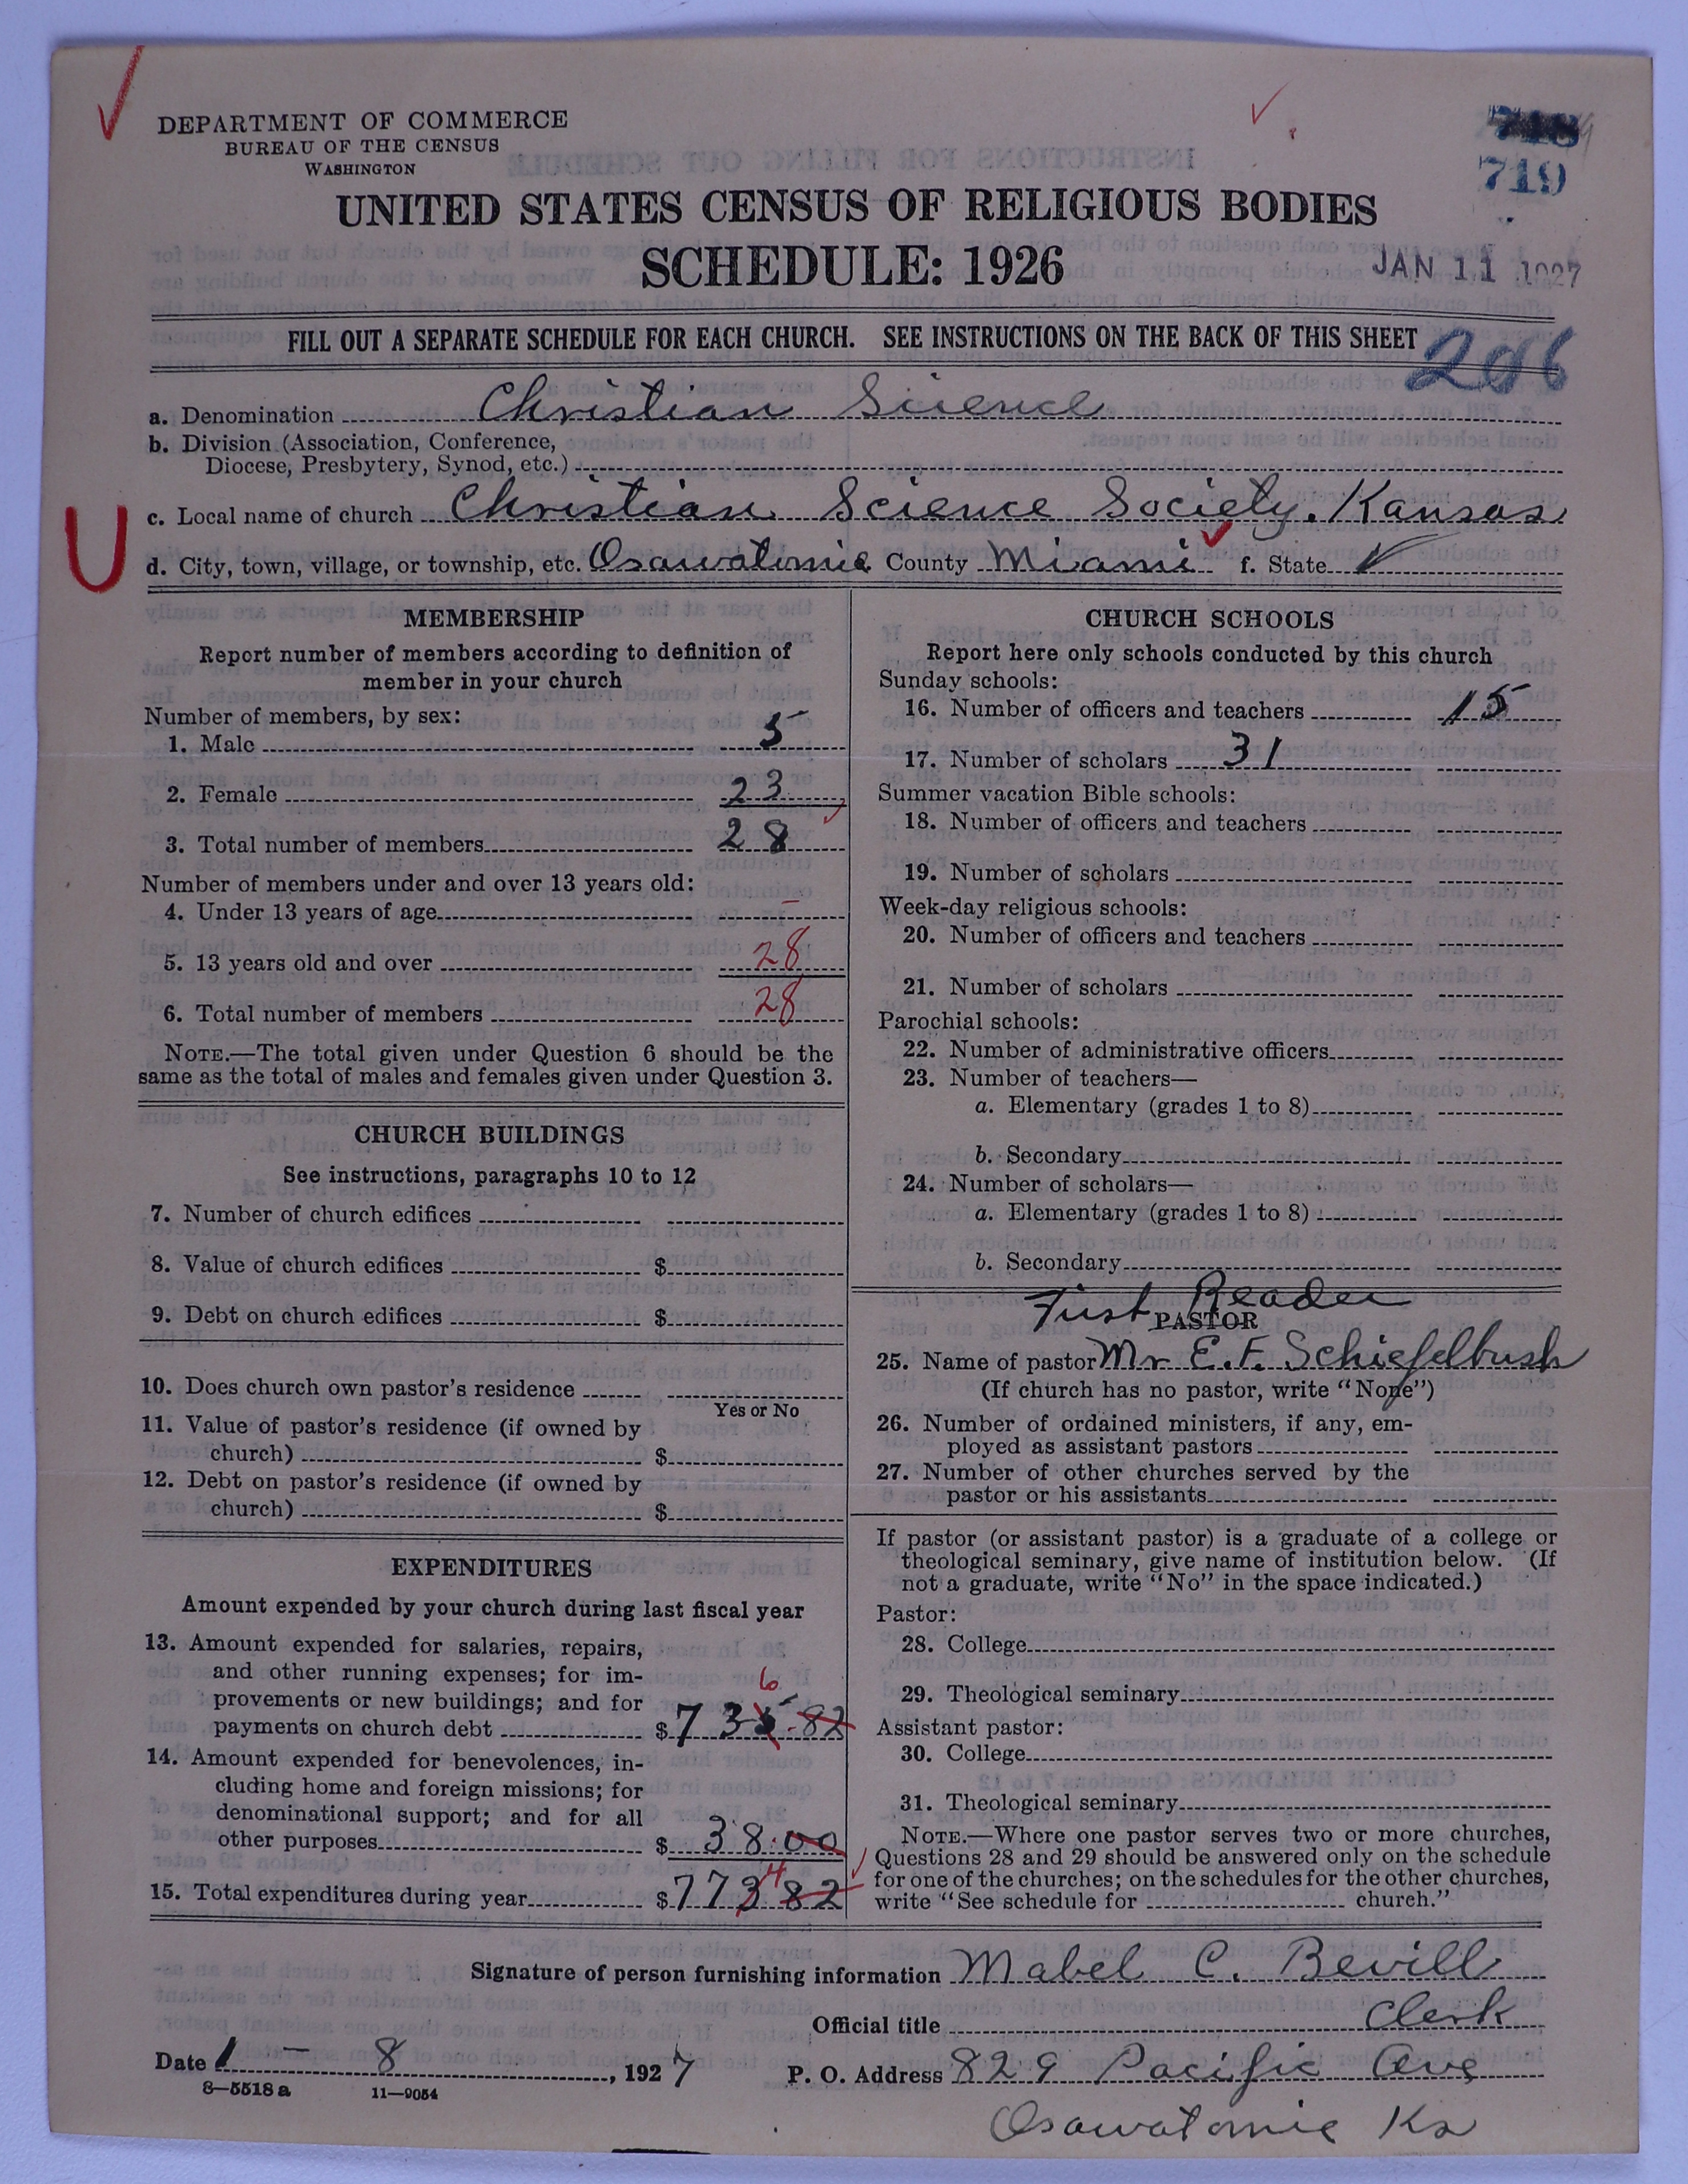 DEPARTMENT OF COMMERCE
BUREAU OF THE CENSUS
WASHINGTON
719
UNITED STATES CENSUS OF RELIGIOUS BODIES
SCHEDULE: 1926
JAN 11 1927
FILL OUT A SEPARATE SCHEDULE FOR EACH CHURCH. SEE INSTRUCTIONS ON THE BACK OF THIS SHEET
206
a. Denomination Christian Science
b. Division (Association, Conference,
Diocese, Presbytery, Synod, etc.)
U
c. Local name of church Christian Science Society. Kansas
d. City, town, village, or township, etc. Osawatomie County Miami f. State
MEMBERSHIP
Report number of members according to definition of
member in your church
Number of members, by sex:
1. Male 5
2. Female 23
3. Total number of members 28
Number of members under and over 13 years old:
4. Under 13 years of age –
5. 13 years old and over 28
6. Total number of members 28
NOTE.—The total given under Question 6 should be the
same as the total of males and females given under Question 3.
CHURCH BUILDINGS
See instructions, paragraphs 10 to 12
7. Number of church edifices
8. Value of church edifices $
9. Debt on church edifices $
10. Does church own pastor's residence
Yes or No
11. Value of pastor's residence (if owned by
church) $
12. Debt on pastor's residence (if owned by
church) $
EXPENDITURES
Amount expended by your church during last fiscal year
13. Amount expended for salaries, repairs,
and other running expenses; for im-
6
provements or new buildings; and for
payments on church debt $735.82
14. Amount expended for benevolences, in-
cluding home and foreign missions; for
denominational support; and for all
other purposes $ 38.00
4
15. Total expenditures during year $773 82
CHURCH SCHOOLS
Report here only schools conducted by this church
Sunday schools:
16. Number of officers and teachers 15
17. Number of scholars 31
Summer vacation Bible schools:
18. Number of officers and teachers
19. Number of scholars
Week-day religious schools:
20. Number of officers and teachers
21. Number of scholars
Parochial schools:
22. Number of administrative officers
23. Number of teachers—
a. Elementary (grades 1 to 8)
b. Secondary
24. Number of scholars—
a. Elementary (grades 1 to 8)
b. Secondary
First Reader
PASTOR
25. Name of pastor Mr E. F. Schiefelbush
(If church has no pastor, write "None")
26. Number of ordained ministers, if any, em-
ployed as assistant pastors
27. Number of other churches served by the
pastor or his assistants
If pastor (or assistant pastor) is a graduate of a college or
theological seminary, give name of institution below. (If
not a graduate, write "No" in the space indicated.)
Pastor:
28. College
29. Theological seminary
Assistant pastor:
30. College
31. Theological seminary
NOTE.—Where one pastor serves two or more churches,
Questions 28 and 29 should be answered only on the schedule
for one of the churches; on the schedules for the other churches,
write "See schedule for church."
Signature of person furnishing information Mabel C. Bevill
Official title Clerk
Date 1 – 8, 1927 P. O. Address 829 Pacific Ave
8—5518 a 11—9054
Osawatomie Ks